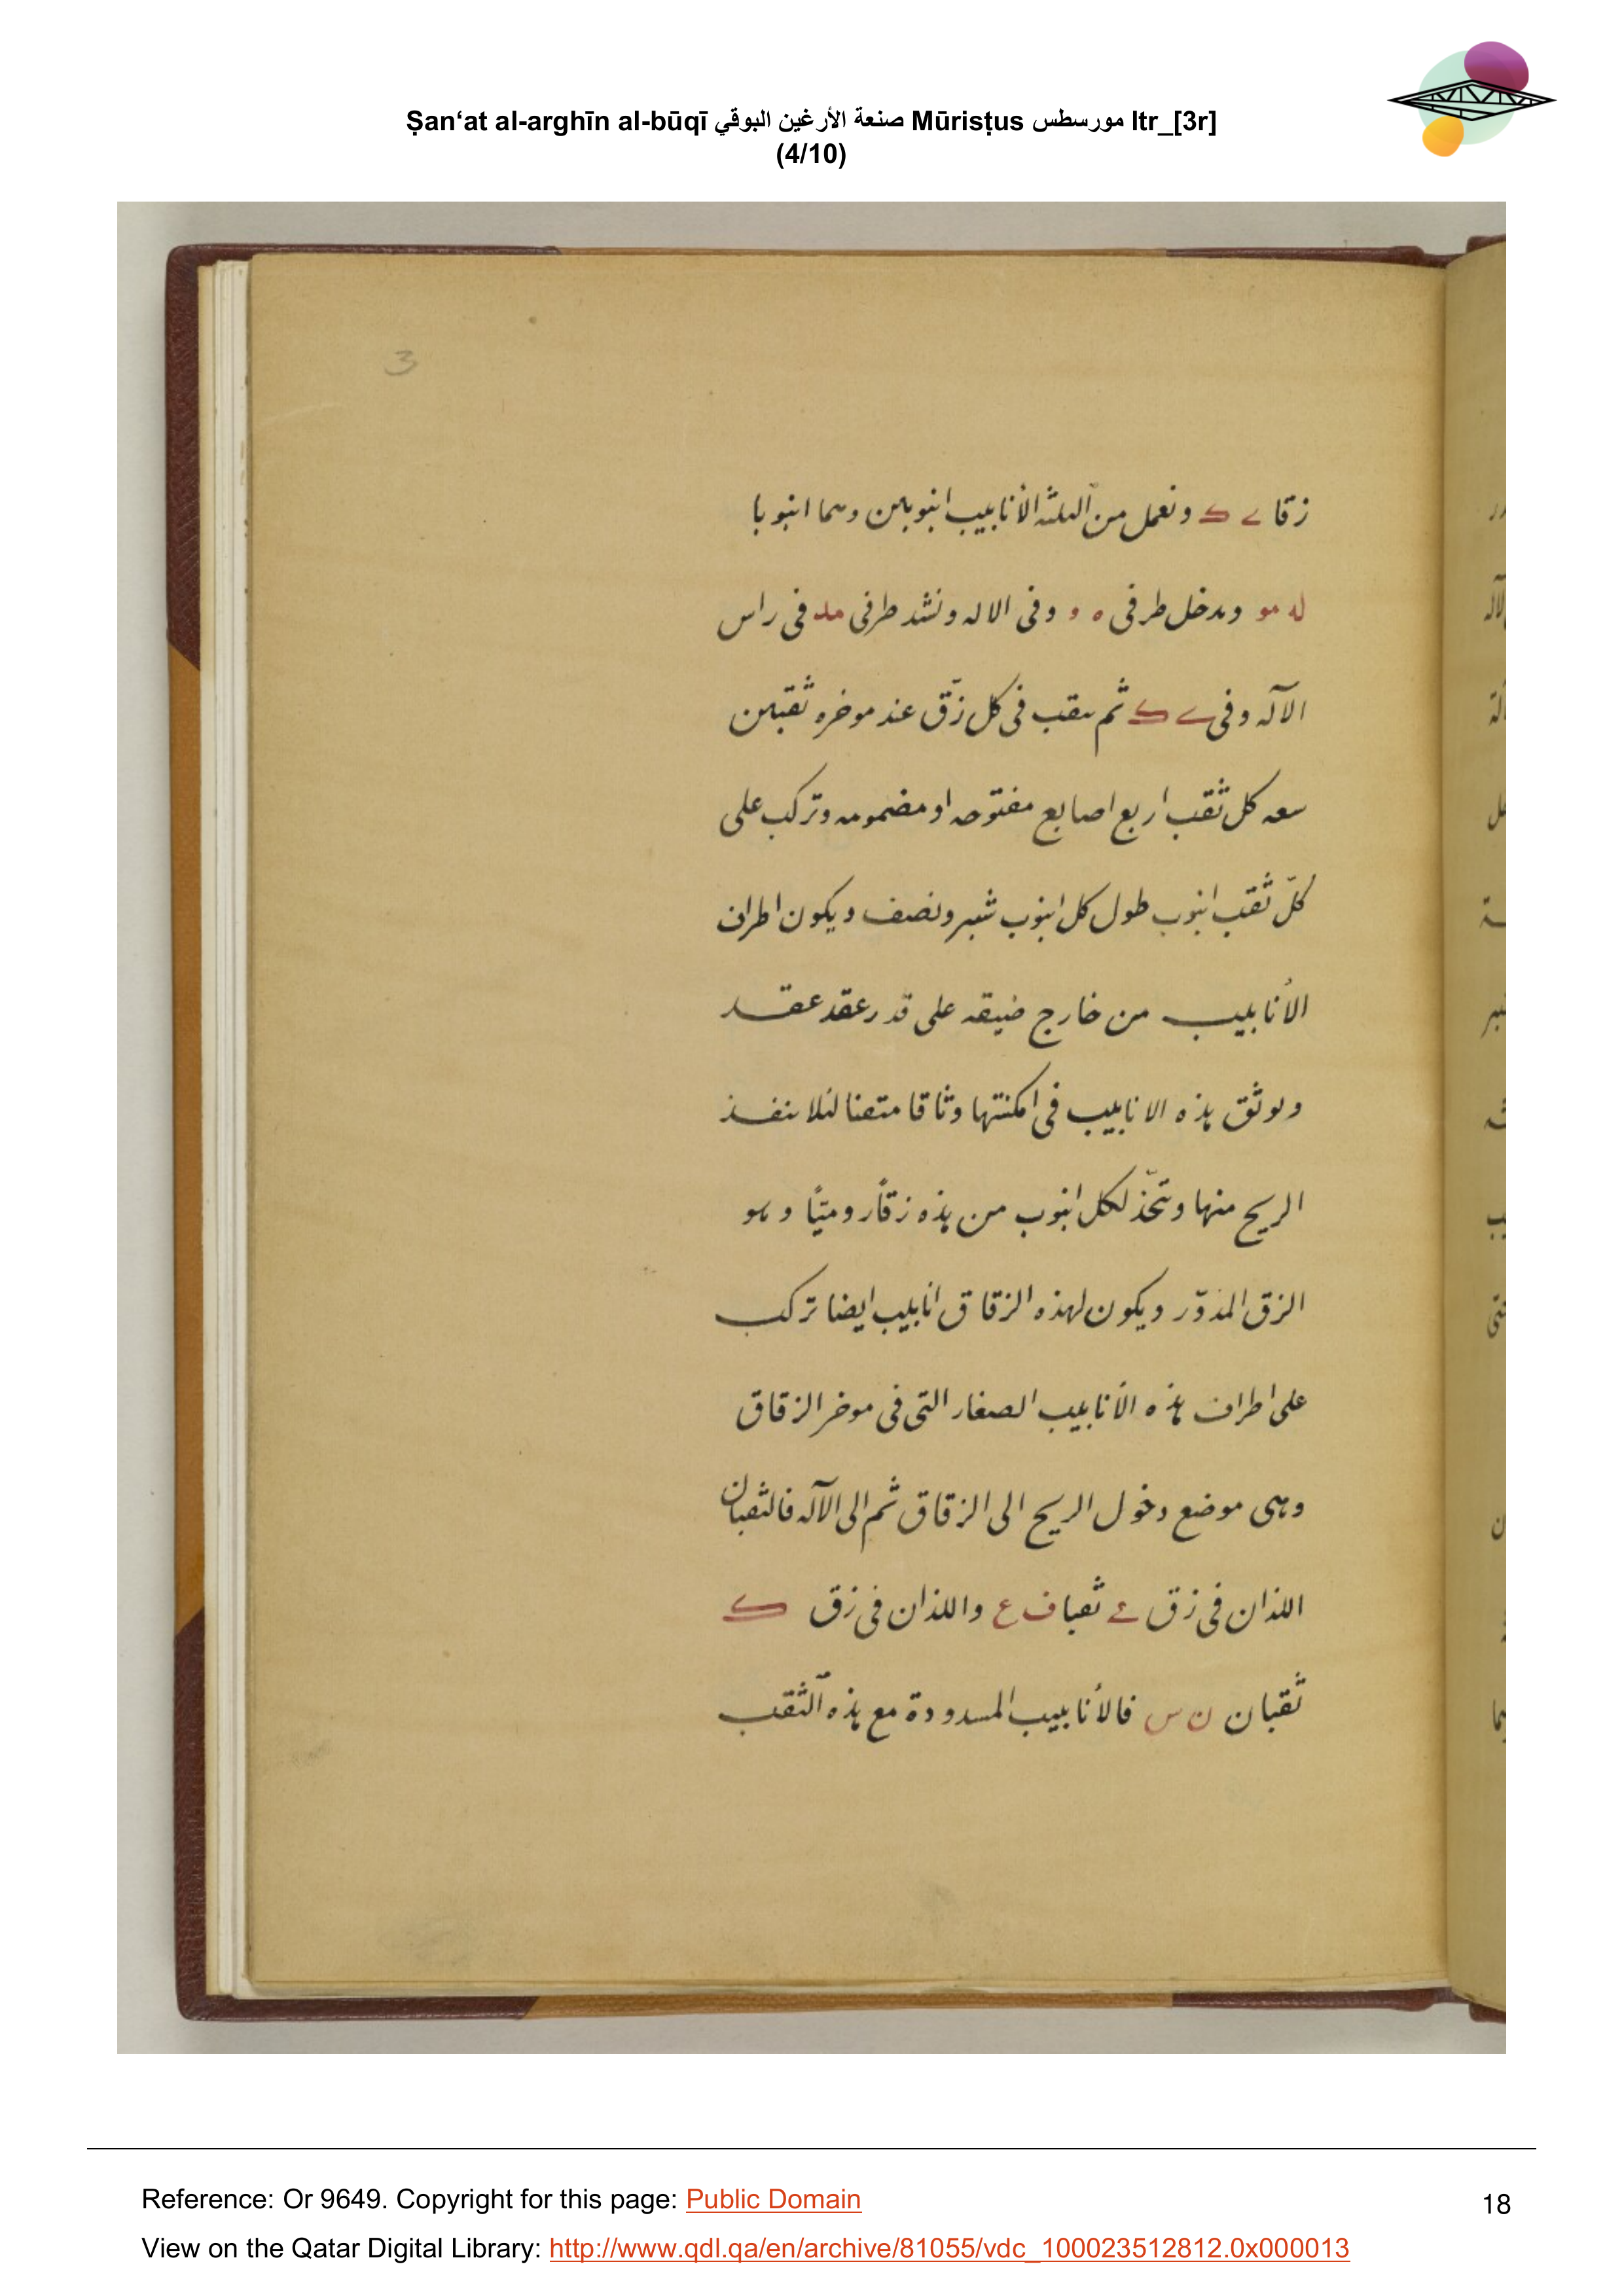 Ṣan‘at al-arghīn al-būqī صنعة الأرغين البوقي Mūrisṭus مورسطس ltr_[3r]
(4/10)
3
زقا ے ك ونعمل من الثلثه الأنابيب انبوبين وهما انبوبا
له مو وىدخل طرفى ه و وفى الاله ونشد طرفى مد فى راس
الآله وفى ے ك ثم ىىقب فى كل زق عند موخره ثقبين
سعه كل ثقب اربع اصابع مفتوحه او مضمومه وتركب على
كلّ ثقب انبوب طول كل انبوب شبر ونصف ويكون اطراف
الأنابيب من خارج ضيقه على قدر عقد عقد
وىوثق هذه الانابيب فى امكنتها وثاقا متقنا لئلا ىنفذ
الريح منها وتتخّذ لكل انبوب من هذه زقاً روميّاً وهو
الزق المدوّر ويكون لهذه الزقاق انابيب ايضا تركب
على اطراف هذه الأنابيب الصغار التى فى موخر الزقاق
وهى موضع دخول الريح الى الزقاق ثم الى الآله فالثقبان
اللذان فى زق ے ثقبا ف ع واللذان فى زق ك
ثقبان ن س فالأنابيب المسدودة مع هذه الثقب
Reference: Or 9649. Copyright for this page: Public Domain
View on the Qatar Digital Library: http://www.qdl.qa/en/archive/81055/vdc_100023512812.0x000013
18